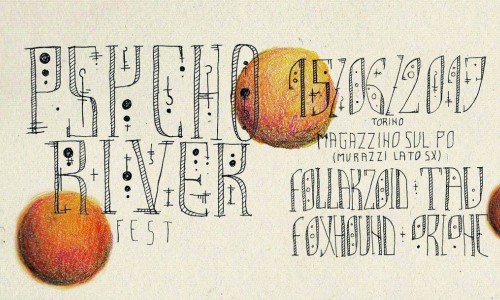 PSYCHO
RIVER
FEST
15/06/2017
TORINO
MAGAZZINO SUL PO
(MURAZZI LATO SX)
FOLLAKZOID + TAU
FOXHOUND +